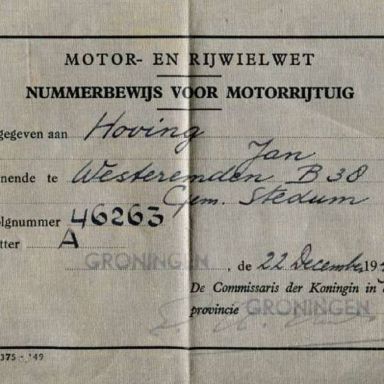 MOTOR- EN RIJWIELWET
NUMMERBEWIJS VOOR MOTORRIJTUIG
gegeven aan Hoving
Jan
nende te Westeremden B 38
Gem. Stedum
olgnummer 46263
tter A
GRONINGEN, de 22 December 19
De Commissaris der Koningin in
provincie GRONINGEN
375 - '49